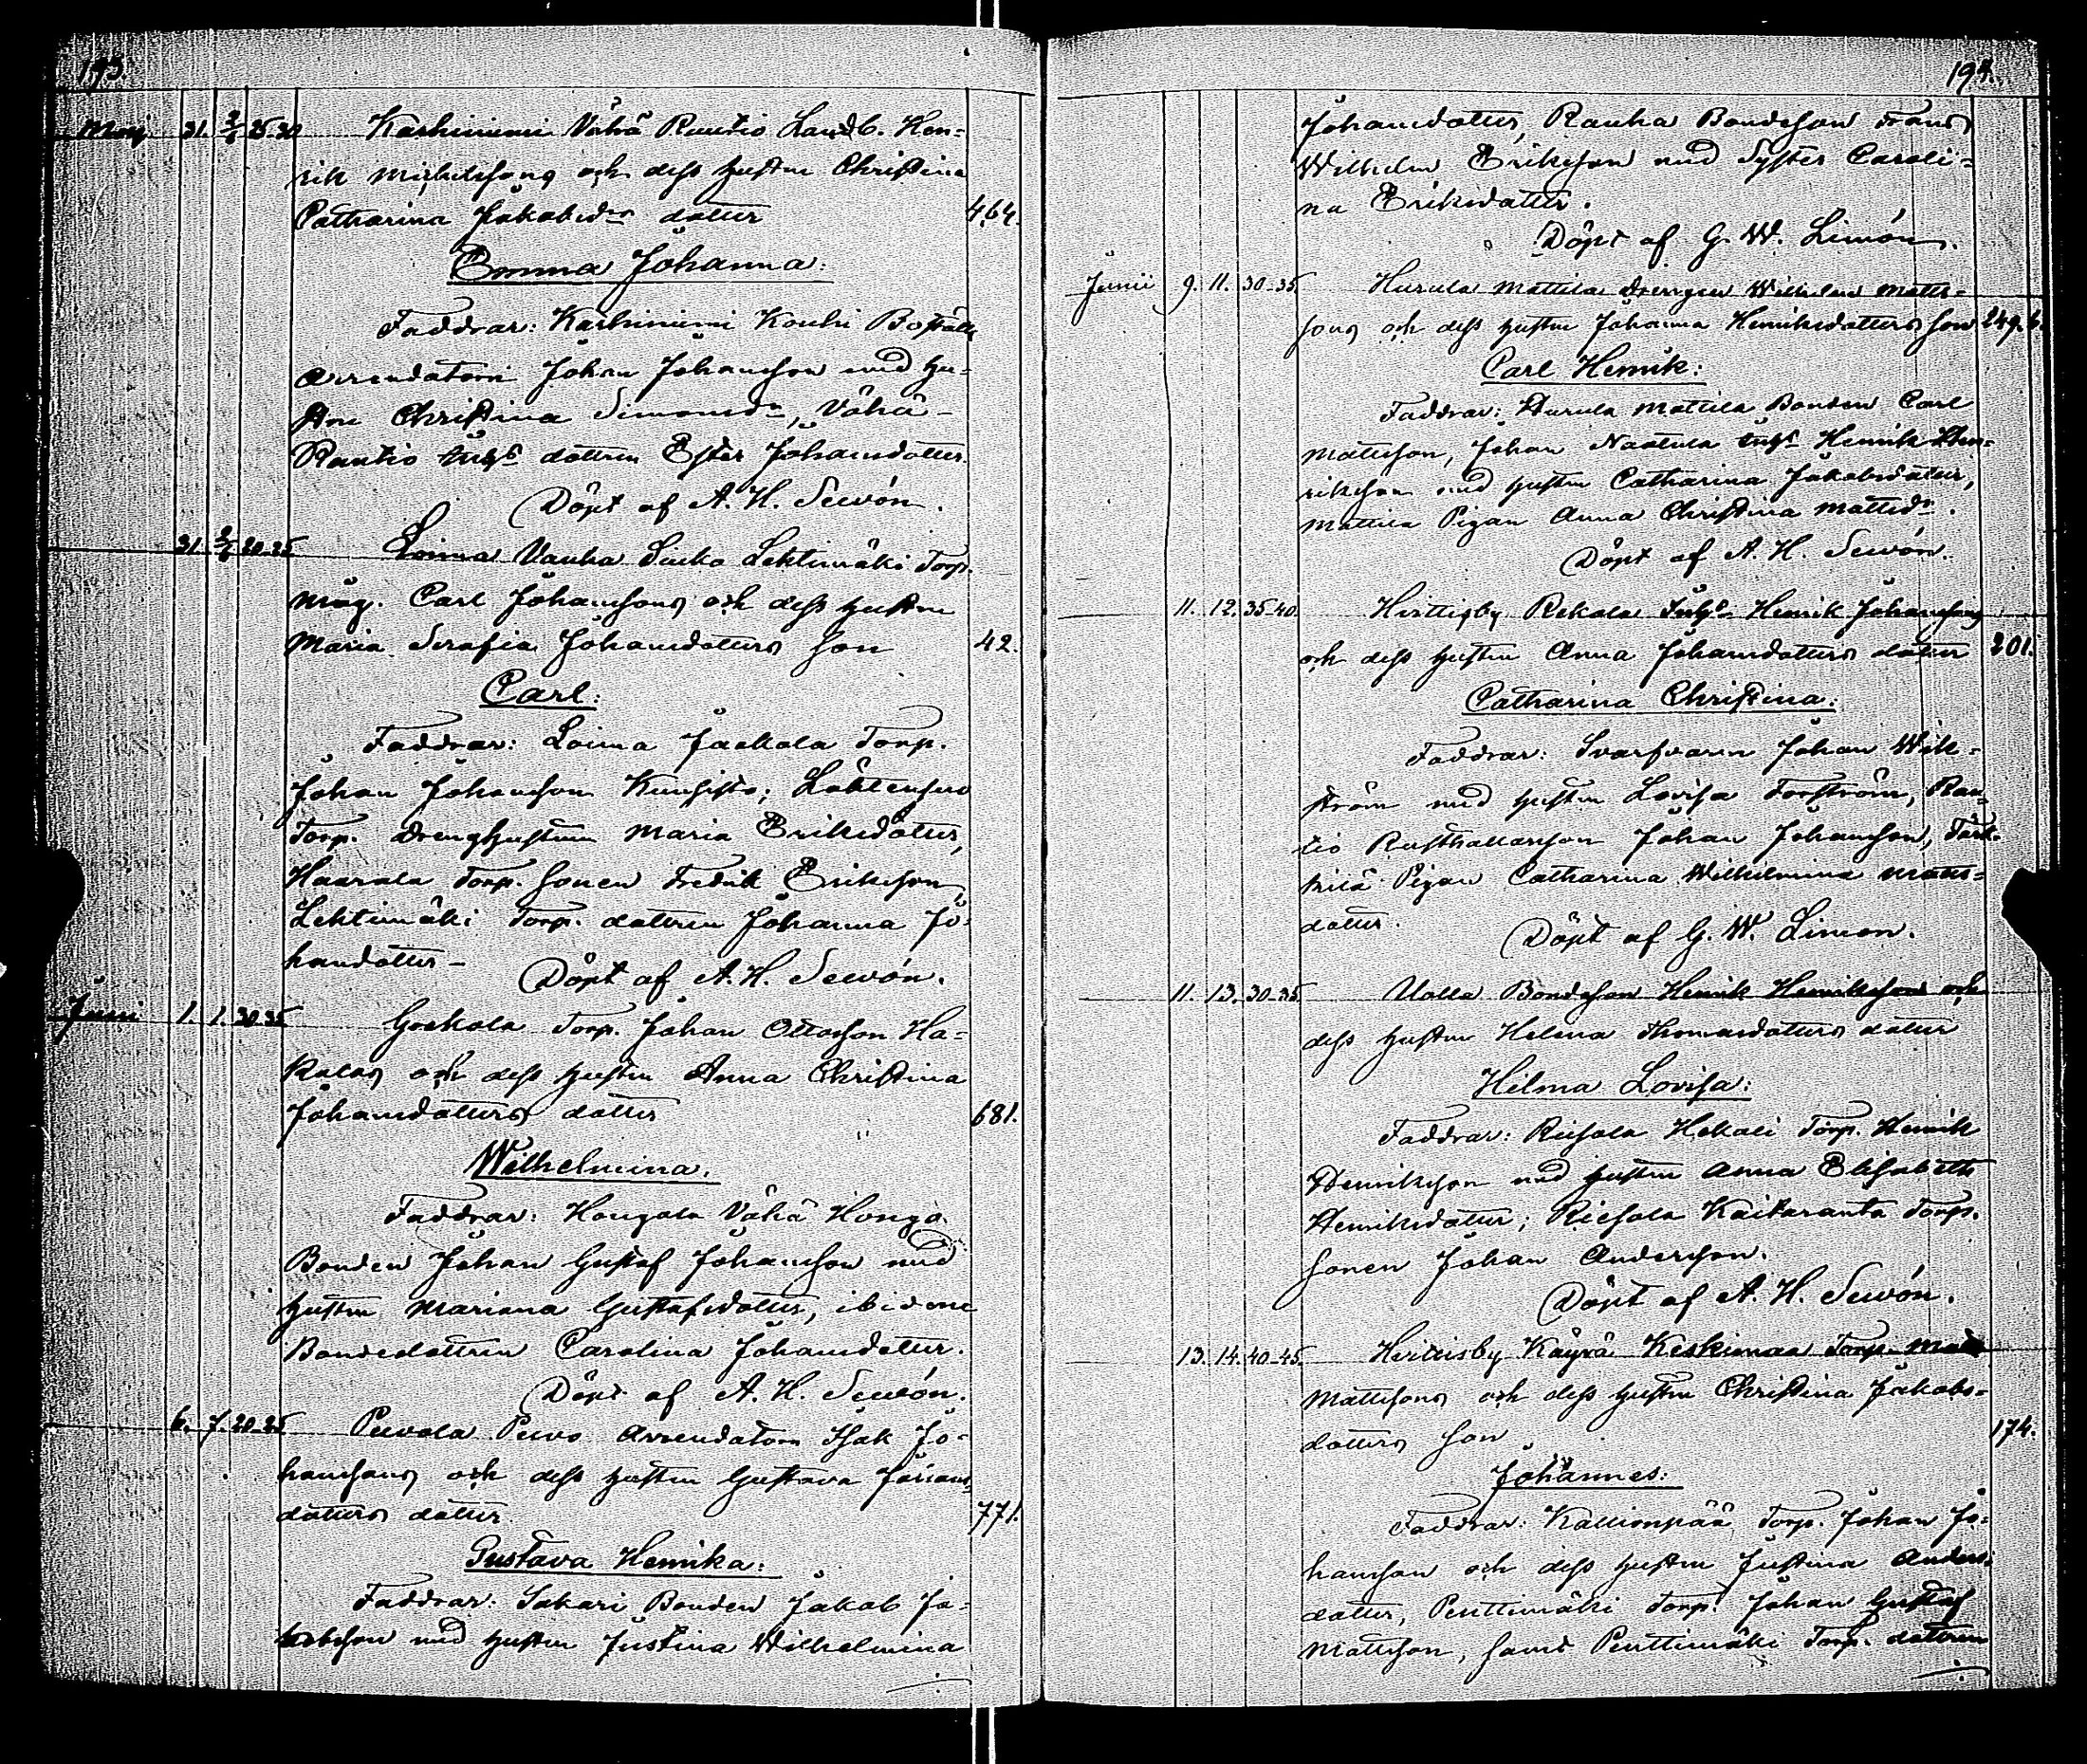 193.
Maj 31. 2/6 25-30 Karhiniemi Vähä Rautio Landb. Hen-
rik Michelsons och dess hustru Christina
Catharina Jakobsdrs dotter 464.
Emma Johanna:
Faddrar: Karhiniemi Kouhi Boställs
arrendatorn Johan Johansson med hu-
stru Christina Simonsdr, Vähä-
Rautio dottren Ester Johansdotter.
Döpt af A. H. Sewón.
31. 2/6 20-25 Loima Vanha Lehtimäki Torp.
måg. Carl Johanssons och dess hustru
Maria Serafia Johansdotters son 42.
Carl:
Faddrar: Loima Jaakola Torp.
Johan Johansson Kuusisto; Lähtensuo
Torp. drenghustrun Maria Eriksdotter,
Haarala Torp. sonen Fredrik Eriksson,
Lehtimäki Torp. dottren Johanna Jo-
hansdotter-
Döpt af A. H. Sewón.
Juni 1. 1. 30-35 Torp. Johan Ottosson Ha-
kalas och dess hustru Anna Christina
Johansdotters dotter 681.
Wilhelmina.
Faddrar: Hongola Vähä Hongo
Bonden Johan Gustaf Johansson med
hustru Mariana Gustafsdotter, ibidem
Bondedottren Carolina Johansdotter.
Döpt af A. H. Sewón.
6. 7. 20-25 Peivola arrendatorn Isak Jo-
hanssons och dess hustru Gustava
dotters dotter 771.
Gustava Henrika:
Faddrar: Sakari Bonden Jakob Ja-
kobsson med hustru Justina Wilhelmina
194.
Johansdotter, Rauha Bondeson Frans
Wilhelm Eriksson med Syster Caroli-
na Eriksdotter.
Döpt af G. W. Limón.
Junii 9. 11. 30-35. Hurula Mattila drengen Wilhelm Matts-
sons och dess hustru Johanna Henriksdotters son 249.b.
Carl Henrik:
Faddrar: Hurula Mattila Bonden Carl
Matsson, Johan Henrik Hen-
riksson med hustru Catharina Jakobsdotter,
Mattila Pigan Anna Christina Mattsdr.
Döpt af A. H. Sewón.
11. 12. 35-40. Hvittisby Rekola Henrik Johanssons
och dess hustru Anna Johansdotters dotter 201.
Catharina Christina:
Faddrar: Svarfvaren Johan Wik-
ström med hustru Lovisa Forsström, Rau-
tio Rusthållarson Johan Johansson,
Pigan Catharina Wilhelmina Matts-
dotter.
Döpt af G. W. Limon.
11. 13. 30-35 Uolla Bondeson Henrik Henriksson och
dess hustru Helena Thomasdotters dotter
Hilma Lovisa:
Faddrar: Riesola Hakali Torp. Henrik
Henriksson med hustru Anna Elisabeth
Henriksdotter; Riesola Kaitaranta Torp.
sonen Johan Andersson.
Döpt af A. H. Sewón.
13. 14. 40-45. Hvittisby Käyrä Keskimaa Torp. Mats
Mattssons och dess hustru Christina Jakobs-
dotters son 174.
Johannes:
Faddrar: Kallionpää Torp. Johan Jo-
hansson och dess hustru Justina Anders-
dotter, Penttimäki Torp. Johan Gustaf
Mattsson, samt Penttimäki Torp. dottren